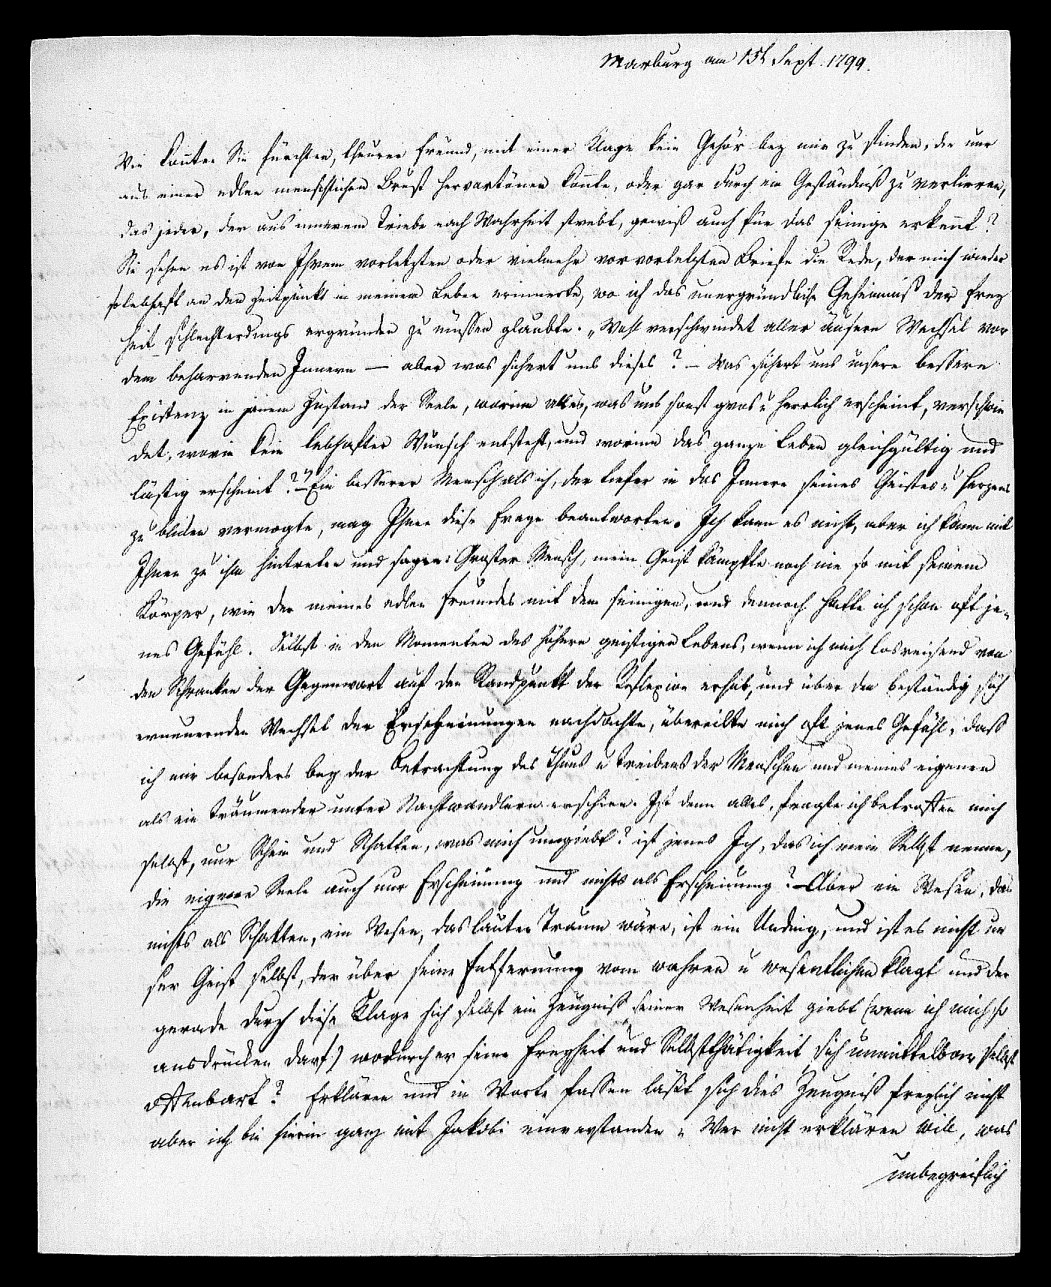 Marburg am 15t Sept. 1799.
Wie konnten Sie fürchten, theurer Freund, mit einer Klage kein Gehör bey mir zu finden, die nur
aus einer edlen menschlichen Brust hervortönen konnte, oder gar durch ein Geständniß zu verlieren,
das jeder, der aus innerem Triebe nach Wahrheit strebt, gewiß auch für das seinige erkennt?
Sie sehen es ist von Ihrem vorletzten oder vielmehr vorvorletzten Briefe die Rede, der mich wieder
so lebhaft an den Zeitpunkt in meinem Leben erinnerte, wo ich das unergründliche Geheimniß der Frey
heit schlechterdings ergründen zu müssen glaubte. „Wohl verschwindet aller äußere Wechsel vor
dem beharrenden Innern — aber was sichert uns dieses? — Was sichert uns unsere bessere
Existenz in jenem Zustand der Seele, worinn alles, was uns sonst gros u herrlich erscheint, verschwin
det, worin kein lebhafter Wunsch entsteht, und worinn das ganze Leben gleichgültig und
lästig erscheint?" Ein besserer Mensch als ich, der tiefer in das Innere seines Geistes u Herzens
zu blicken vermogte, mag Ihnen diese Frage beantworten. Ich kann es nicht, aber ich kann mit
Ihnen zu ihm hintreten und sagen: Großer Mensch, mein Geist kämpfte noch nie so mit seinem
Körper, wie der meines edlen Freundes mit dem seinigen, und dennoch hatte ich schon oft je-
nes Gefühl. Selbst in den Momenten des höhern geistigen Lebens, wenn ich mich losreisend von
den Schranken der Gegenwart auf den Standpunkt der Reflexion erhub, und über den beständig sich
erneuernden Wechsel der Erscheinungen nachdachte, übereilte mich oft jenes Gefühl, daß
ich mir besonders bey der Betrachtung des Thuns u Treibens der Menschen und meines eigenen
als ein Träumender unter Nachtwandlern erschien. Ist denn alles, fragte ich betroffen mich
selbst, nur Schein und Schatten, was mich umgiebt? ist jenes Ich, das ich mein Selbst nenne,
die eigene Seele auch nur Erscheinung und nichts als Erscheinung? — Aber ein Wesen, das
nichts als Schatten, ein Wesen, das lauter Traum wäre, ist ein Unding, und ist es nicht un
ser Geist selbst, der über seine Entfernung vom wahren u wesentlichen klagt und der
gerade durch diese Klage sich selbst ein Zeugniß seiner Wesenheit giebt (wenn ich mich so
ausdrücken darf) wodurch er seine Freyheit und Selbstthätigkeit sich unmittelbar selbst
offenbart? Erklären und in Worte fassen läßt sich dies Zeugniß freylich nicht
aber ich bin hierin ganz mit Jakobi einverstanden „Wer nicht erklären will, was
unbegreiflich